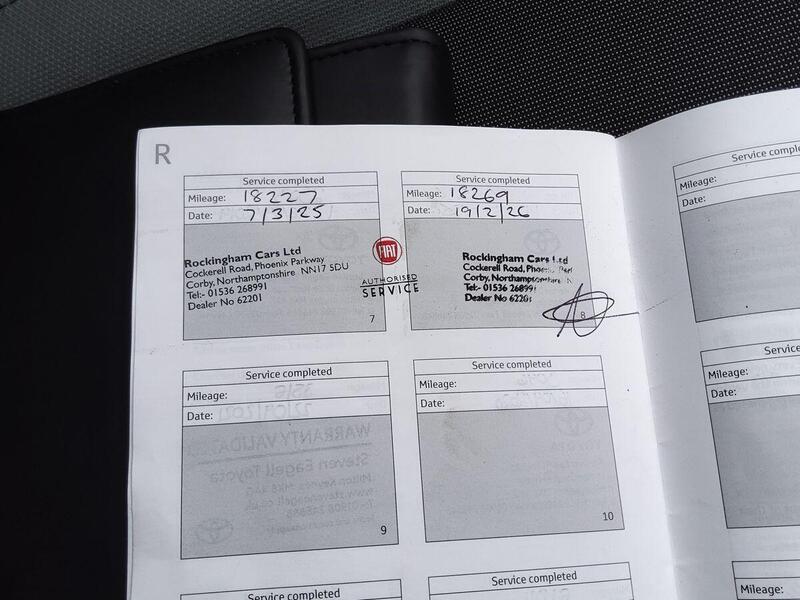 R
Service completed
Mileage: 18227
Date: 7/3/25
Rockingham Cars Ltd
Cockerell Road, Phoenix Parkway
Corby, Northamptonshire NN17 5DU
Tel:- 01536 268991
Dealer No 62201
7
FIAT
AUTHORISED
SERVICE
Service completed
Mileage: 18269
Date: 19/2/26
Rockingham Cars Ltd
Cockerell Road,
Corby, Northamptonshire
Tel:- 01536 268991
Dealer No 62201
8
Service completed
Mileage:
Date:
9
Service completed
Mileage:
Date:
10
Service completed
Service completed
Service complete
Mileage:
Date:
Service
Mileage:
Date:
Mileage: